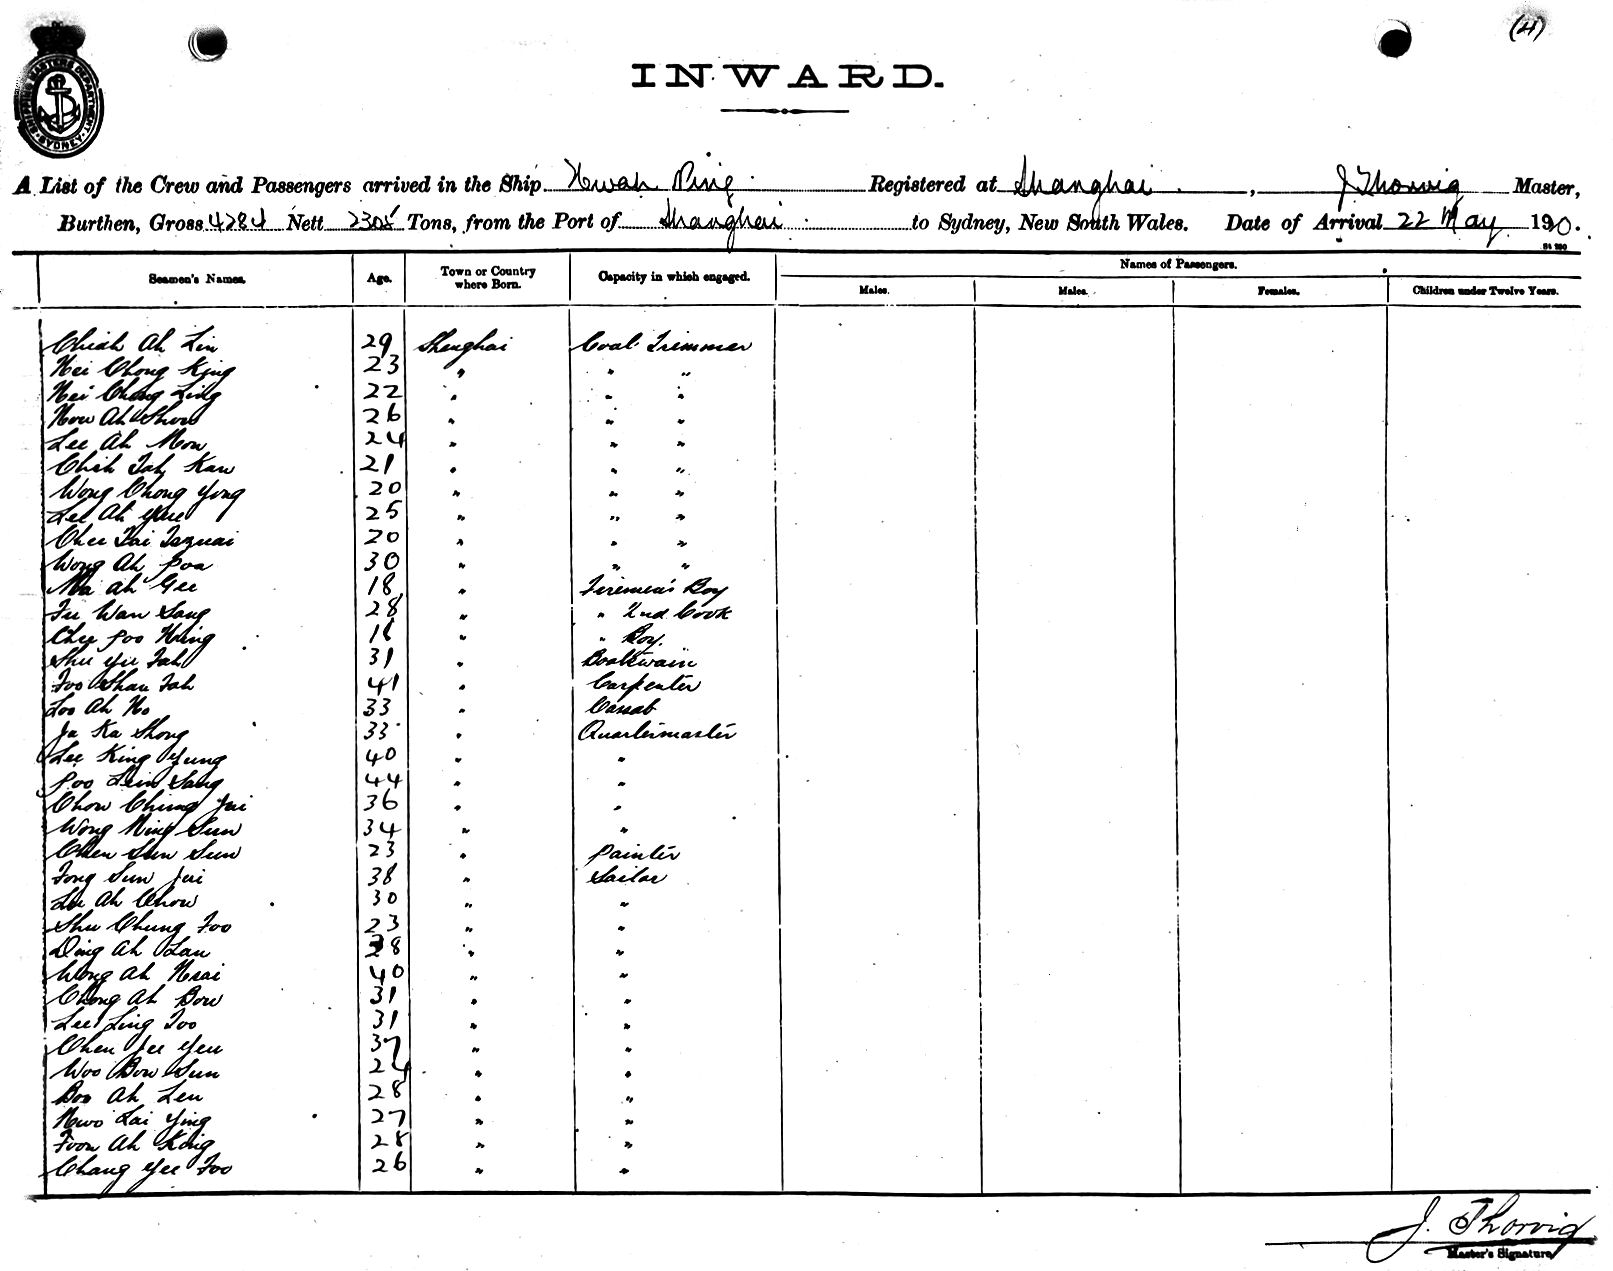 (4)
SHIPPING MASTERS DEPARTMENT SYDNEY
INWARD.
A List of the Crew and Passengers arrived in the Ship Hwah Ping Registered at Shanghai, J Thorvig Master,
Burthen, Gross 4284 Nett 2305 Tons, from the Port of Shanghai to Sydney, New South Wales. Date of Arrival 22 May 1920.
Seamen's Names. Age. Town or Country where Born. Capacity in which engaged. Names of Passengers.
Males. Males. Females. Children under Twelve Years.
Chiah Ah Lin 29 Shanghai Coal Trimmer
Nei Chong King 23 " " "
Nei Chong Ling 22 " " "
How Ah Show 26 " " "
Lee Ah Mow 24 " " "
Chih Tah Kaw 21 " " "
Wong Chong Yong 20 " " "
Lee Ah Yue 25 " " "
Chee Tai 20 " " "
Wong Ah Poa 30 " " "
Ma Ah Gee 18 " Firemen's Boy
Fu Wan Sang 28 " " 2nd Cook
Chee Poo 18 " " Boy.
Shu Yu Tah 31 " Boatswain
Foo Shau Tah 41 " Carpenter
Loo Ah No 33 " Cassab
Ja Ka Shong 33 " Quartermaster
Lee King Yung 40 " "
Poo Lein Sang 44 " "
Chow Ching Jui 36 " "
Wong Ning Sun 34 " "
Chen Sun Sun 23 " Painter
Fong Sun Jui 38 " Sailor
Lu Ah Chow 30 " "
Shu Chung Foo 23 " "
Ding Ah Lau 38 " "
Wong Ah Nsai 40 " "
Chong Ah Bow 31 " "
Lee Ling Foo 31 " "
Chen Jee Yeu 37 " "
Woo Bow Sun 24 " "
Boo Ah Leu 28 " "
Hwo Lai Ying 27 " "
Foon Ah Kong 28 " "
Chang Yee Foo 26 " "
J. Thorvig
Master's Signature